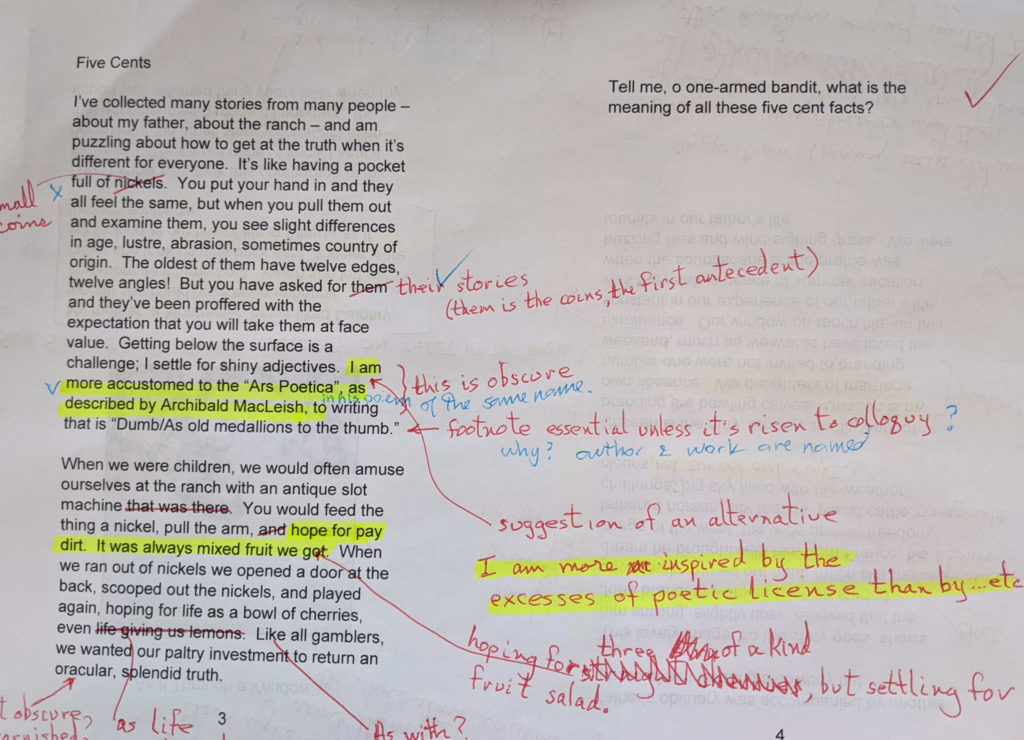 Five Cents
I've collected many stories from many people –
about my father, about the ranch – and am
puzzling about how to get at the truth when it's
different for everyone. It's like having a pocket
full of nickels. You put your hand in and they
all feel the same, but when you pull them out
and examine them, you see slight differences
in age, lustre, abrasion, sometimes country of
origin. The oldest of them have twelve edges,
twelve angles! But you have asked for them
and they've been proffered with the
expectation that you will take them at face
value. Getting below the surface is a
challenge; I settle for shiny adjectives. I am
more accustomed to the "Ars Poetica", as
described by Archibald MacLeish, to writing
that is "Dumb/As old medallions to the thumb."
When we were children, we would often amuse
ourselves at the ranch with an antique slot
machine that was there. You would feed the
thing a nickel, pull the arm, and hope for pay
dirt. It was always mixed fruit we got. When
we ran out of nickels we opened a door at the
back, scooped out the nickels, and played
again, hoping for life as a bowl of cherries,
even life giving us lemons. Like all gamblers,
we wanted our paltry investment to return an
oracular, splendid truth.
3
mall
coins
x
their stories
(them is the coins, the first antecedent)
this is obscure
in his poem of the same name.
footnote essential unless it's risen to colloquy ?
why? author & work are named
suggestion of an alternative
I am more inspired by the
excesses of poetic license than by...etc
hoping for three of a kind
, but settling for
fruit salad.
t obscure,
as life
As with?
Tell me, o one-armed bandit, what is the
meaning of all these five cent facts?
4